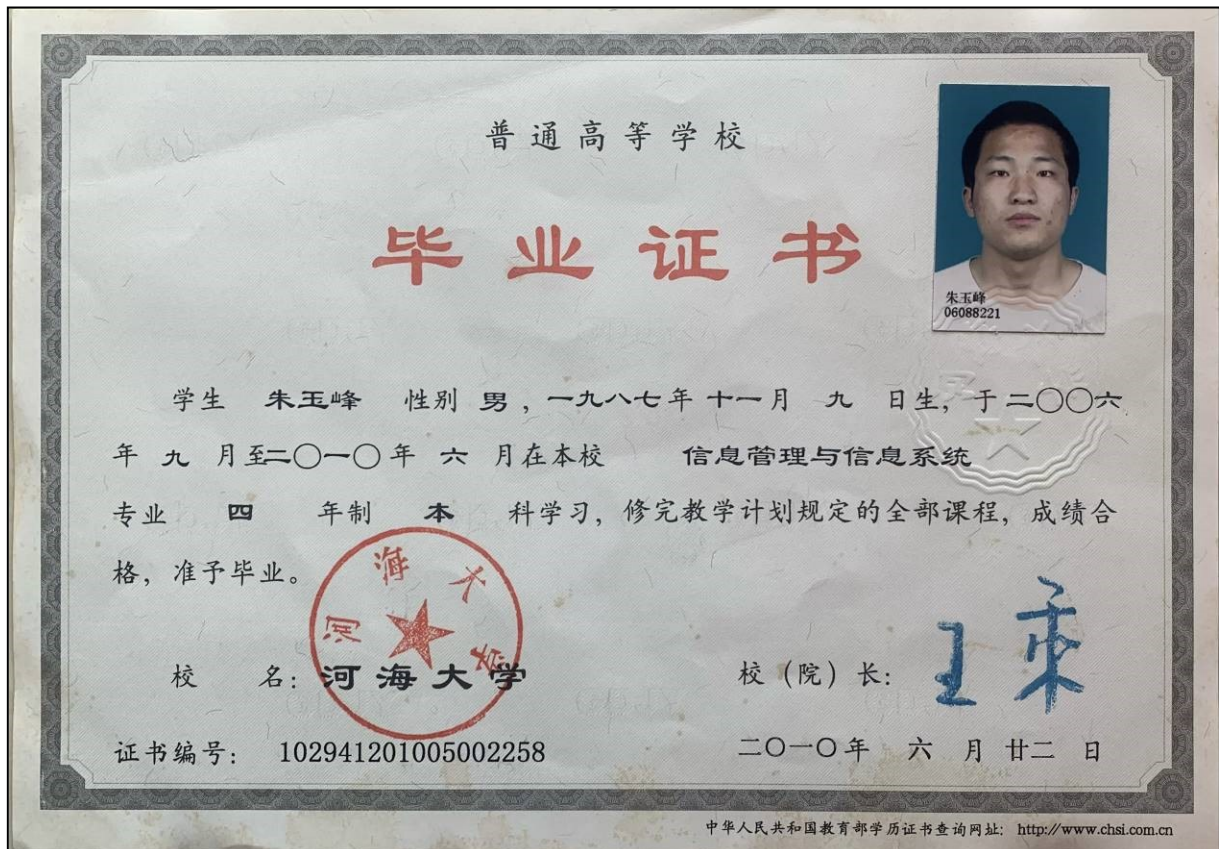 普通高等学校
毕业证书
朱玉峰
06088221
学生 朱玉峰 性别 男，一九八七年 十一月 九 日生，于二〇〇六
年 九 月至二〇一〇年 六 月在本校 信息管理与信息系统
专业 四 年制 本 科学习，修完教学计划规定的全部课程，成绩合
格，准予毕业。
河海大学
校 名：河海大学
校（院）长：王乘
证书编号： 102941201005002258
二〇一〇年 六 月 廿二 日
中华人民共和国教育部学历证书查询网址： http://www.chsi.com.cn